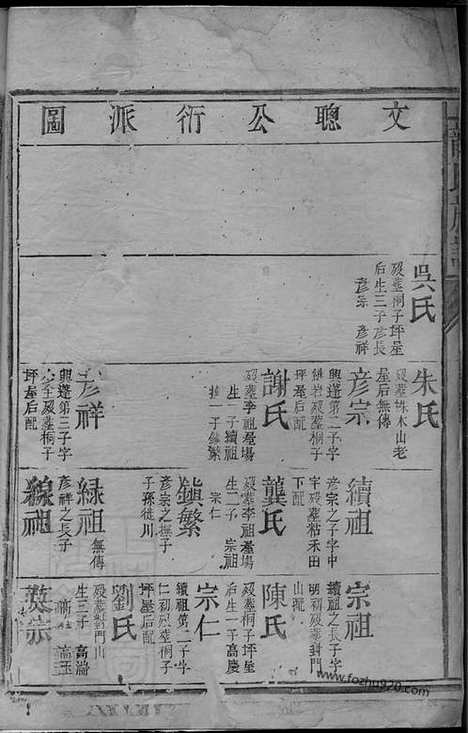 文聰公衍派圖
吳氏
歿葬桐子坪屋
后生三子彥長
彥宗 彥祥
朱氏
歿葬株木山老
屋后無傳
彥宗
興蓬第二子字
歿葬桐子
坪屋后配
謝氏
歿葬李祖屋場
生一子續祖
撫一子鎰繁
彥祥
興蓬第三子字
歿葬桐子
坪屋后配
續祖
彥宗之子字中
宇歿葬粘禾田
下配
龔氏
歿葬李祖屋場
生二子 宗祖
宗仁
鎰繁
彥宗之撫子
子孫徙川
緑祖
無傳
彥祥之長子
線祖
宗祖
續祖之長子字
明初歿葬封門
山配
陳氏
歿葬桐子坪屋
后生一子高慶
宗仁
續祖第二子字
仁初歿葬桐子
坪屋后配
劉氏
歿葬封門山
生三子 高瀚
高玉
www.fozhu920.com